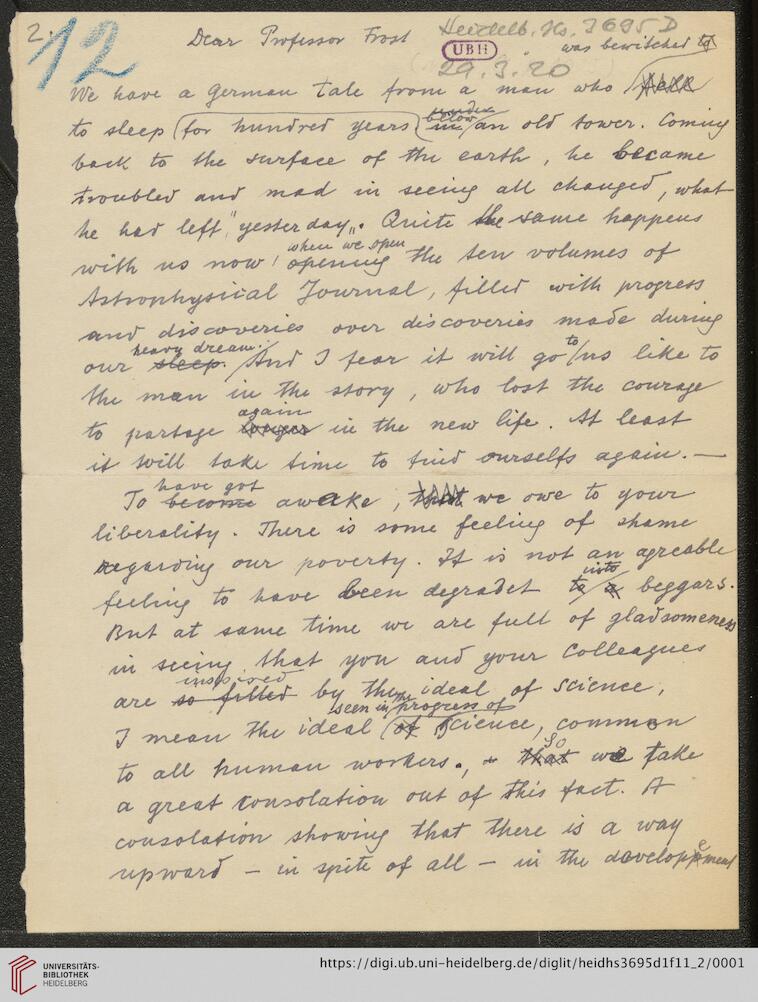 2.
12
Dear Professor Frost
Heidelb. Hs. 3695 D
UBH
29.3.20
was bewitched to
We have a german tale from a man who fell
to sleep (for hundred years) in under below an old tower. Coming
back to the surface of the earth, he became
troubled and mad in seeing all changed, what
he had left „yesterday„. Quite the same happens
when we open
with us now! opening the ten volumes of
Astrophysical Journal, filled with progress
and discoveries over discoveries made during
heavy dream.
our sleep. And I fear it will go to us like to
the man in the story, who lost the courage
again
to partage longer in the new life. At least
it will take time to find ourselfs again. —
have got
To become awake, that we owe to your
liberality. There is some feeling of shame
regarding our poverty. It is not an agreable
into
feeling to have been degradet to a beggars.
But at same time we are full of gladsomeness
in seeing that you and your Colleagues
inspired
are so filled by the ideal of science,
seen in the progress of
I mean the ideal of science, common
so
to all human workers., that we take
a great consolation out of this fact. A
consolation showing that there is a way
upward — in spite of all — in the developpement
UNIVERSITÄTS-
BIBLIOTHEK
HEIDELBERG
https://digi.ub.uni-heidelberg.de/diglit/heidhs3695d1f11_2/0001